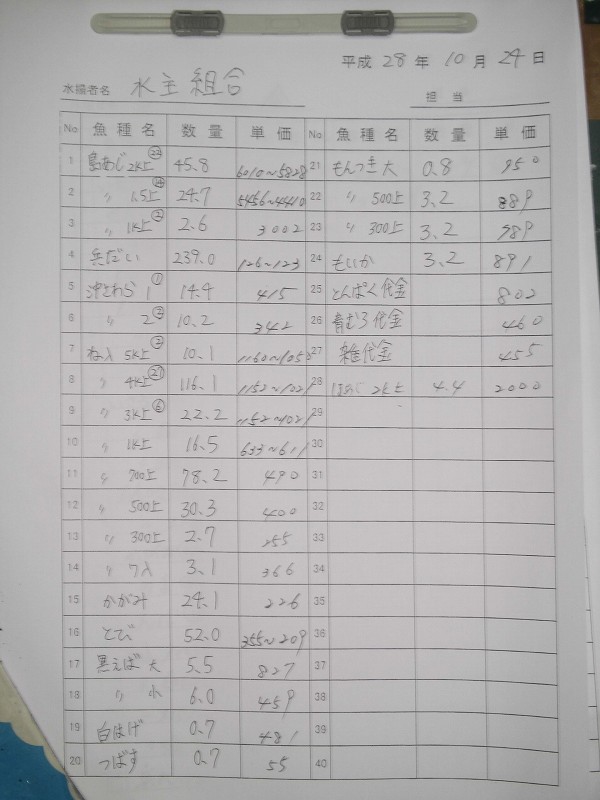 平成 28 年 10 月 24 日
水揚者名 水主組合
担当
No 魚種名 数量 単価 No 魚種名 数量 単価
1 島あじ 2K上 45.8 6010~5828 21 もんつき大 0.8 950
2 〃 1.5上 24.7 5456~4410 22 〃 500上 3.2 989
3 〃 1K上 2.6 3002 23 〃 300上 3.2 989
4 兵だい 239.0 126~123 24 もいか 3.2 891
5 沖さわら 1 ① 14.4 415 25 とんぼく代金 802
6 〃 2 10.2 342 26 青むろ代金 460
7 ね入 5K上 10.1 1160~1050 27 雑代金 455
8 〃 4K上 ㉗ 116.1 1152~1021 28 2K上 4.4 2000
9 〃 3K上 ⑥ 22.2 1152~1021 29
10 〃 1K上 16.5 633~611 30
11 〃 700上 78.2 490 31
12 〃 500上 30.3 400 32
13 〃 300上 2.7 255 33
14 〃 ワ入 3.1 366 34
15 かがみ 24.1 226 35
16 とび 52.0 355~209 36
17 黒えば 大 5.5 827 37
18 〃 小 6.0 459 38
19 白はげ 0.7 481 39
20 つばす 0.7 55 40